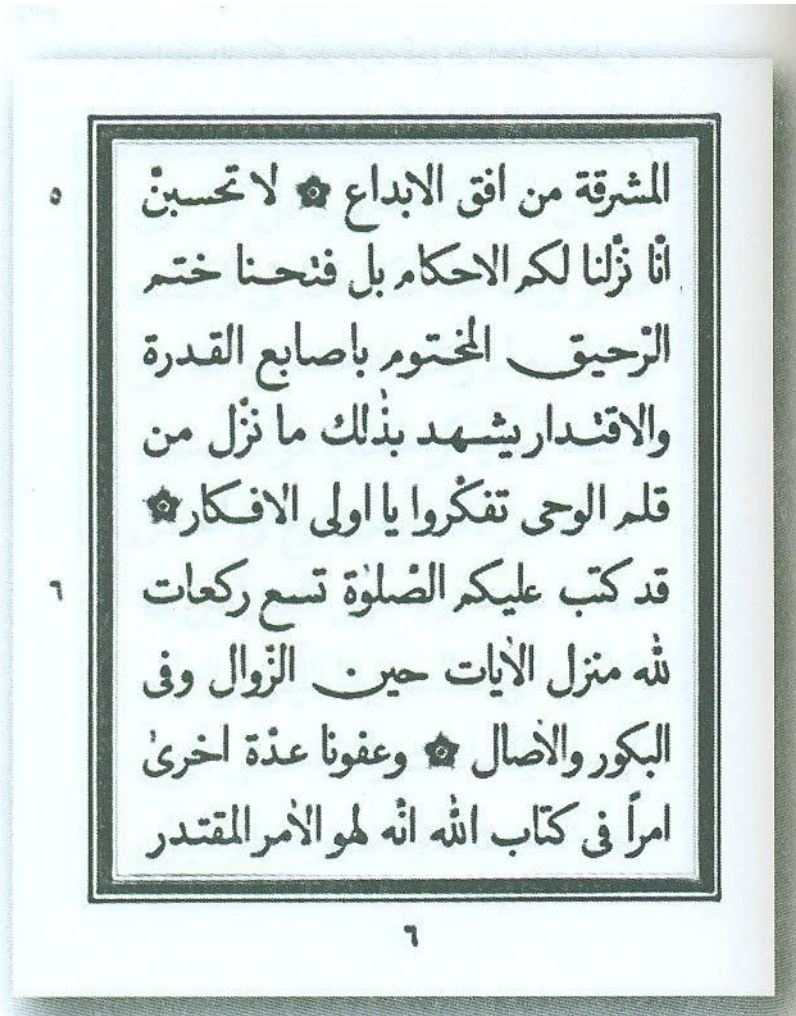 المشرقة من افق الابداع ۞ لا تحسبنّ
٥
انّا نزّلنا لكم الاحكام بل فتحنا ختم
الرّحيق المختوم باصابع القدرة
والاقتدار يشهد بذٰلك ما نزّل من
قلم الوحى تفكّروا يا اولى الافكار ۞
قد كتب عليكم الصّلوٰة تسع ركعات
٦
للّه منزل الاٰيات حين الزّوال وفى
البكور والاٰصال ۞ وعفونا عدّة اخرىٰ
امراً فى كتاب اللّه انّه لهو الاٰمر المقتدر
٦